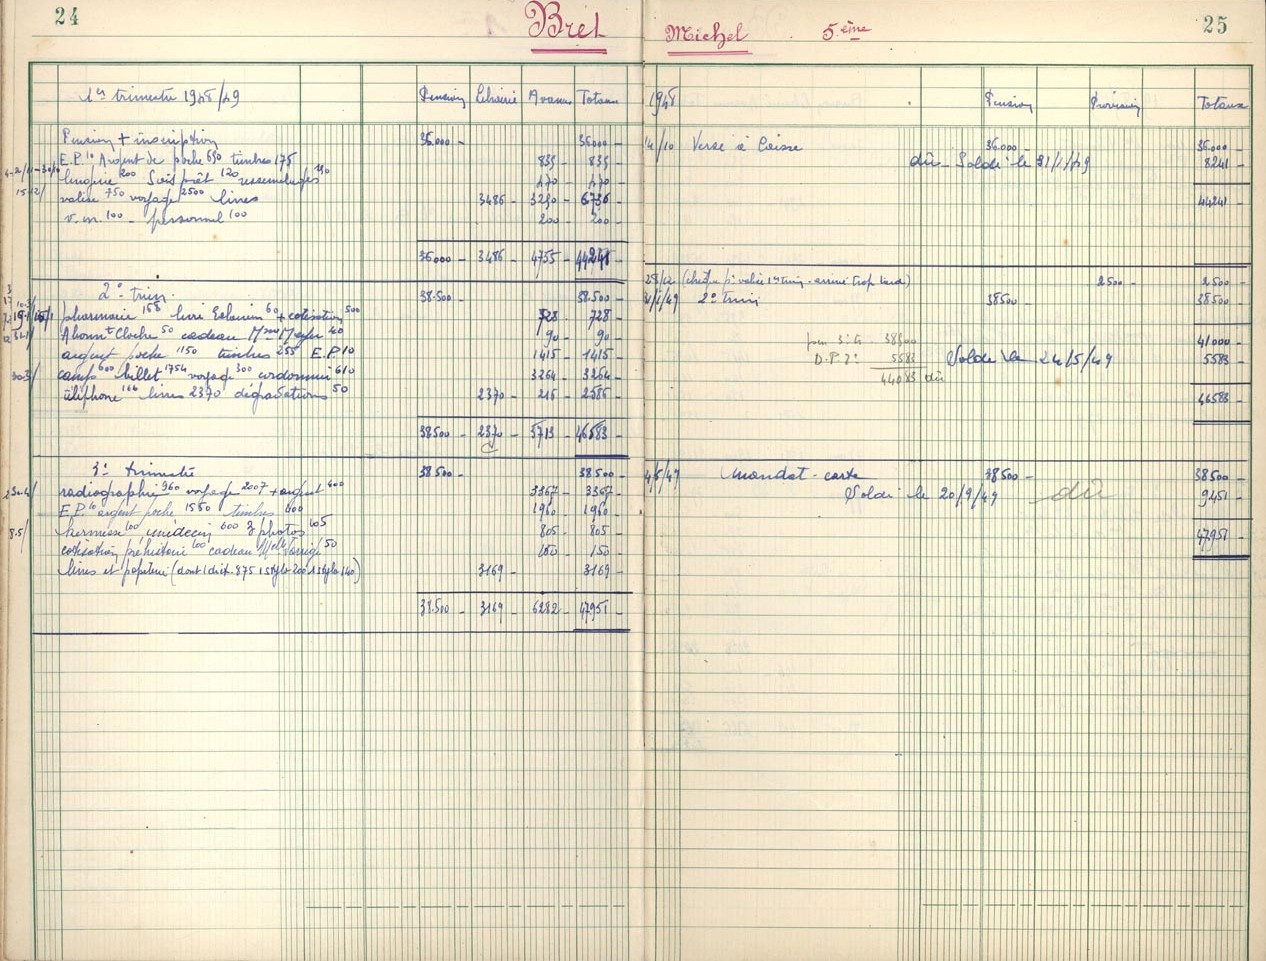 24
Bret
1er trimestre 1948/49 Pension Librairie Avances Totaux
Pension + inscription 36.000 - 36.000 -
E.P. 10 Argent de poche 650 timbres 175 835 - 835 -
lingerie 200 120 ressemelages 150 470 - 470 -
15-12/ valise 750 voyage 2500 livres 3486 - 3250 - 6736 -
v. m. 100 - personnel 100 200 - 200 -
36000 - 3486 - 4755 - 44241 -
2e trim. 38.500 - 38.500 -
pharmacie 168 livre 60 + cotisation 500 728 - 728 -
Abonnt Cloche 50 cadeau Mme Meyer 40 90 - 90 -
argent poche 1150 timbres 255 E.P. 10 1415 - 1415 -
camp 600 billet 1754 voyage 300 cordonnier 610 3264 - 3264 -
téléphone 166 livres 2370 dégradations 50 2370 - 216 - 2586 -
38500 - 2370 - 5713 - 46583 -
3e trimestre 38.500 - 38.500 -
radiographie 960 voyage 2007 + argent 400 3367 - 3367 -
E.P. 10 argent poche 1550 timbres 400 1960 - 1960 -
8.5/ kermesse 100 médecin 600 3 photos 105 805 - 805 -
cotisation préhistoire 100 cadeau Melle 50 150 - 150 -
livres et papeterie (dont 1 dict. 875 1 stylo 200 1 stylo 140) 3169 - 3169 -
38.500 - 3169 - 6282 - 47951 -
25
Michel 5.ème
1948 Pension Provision Totaux
14/10 Versé à Caisse 36.000 - 36.000 -
dû - Soldé le 31/1/49 8241 -
44241 -
28/12 (chèque pr valise 1er trim. arrivé trop tard) 2500 - 2.500 -
2e trim 38500 38500 -
41000 -
pr 3e t. 38500
D.P. 2e 5583 Soldé le 24/5/49 5583 -
44083 dû
46583 -
4/5/49 Mandat-carte 38500 - 38500 -
Soldé le 20/9/49 dû 9451 -
47951 -